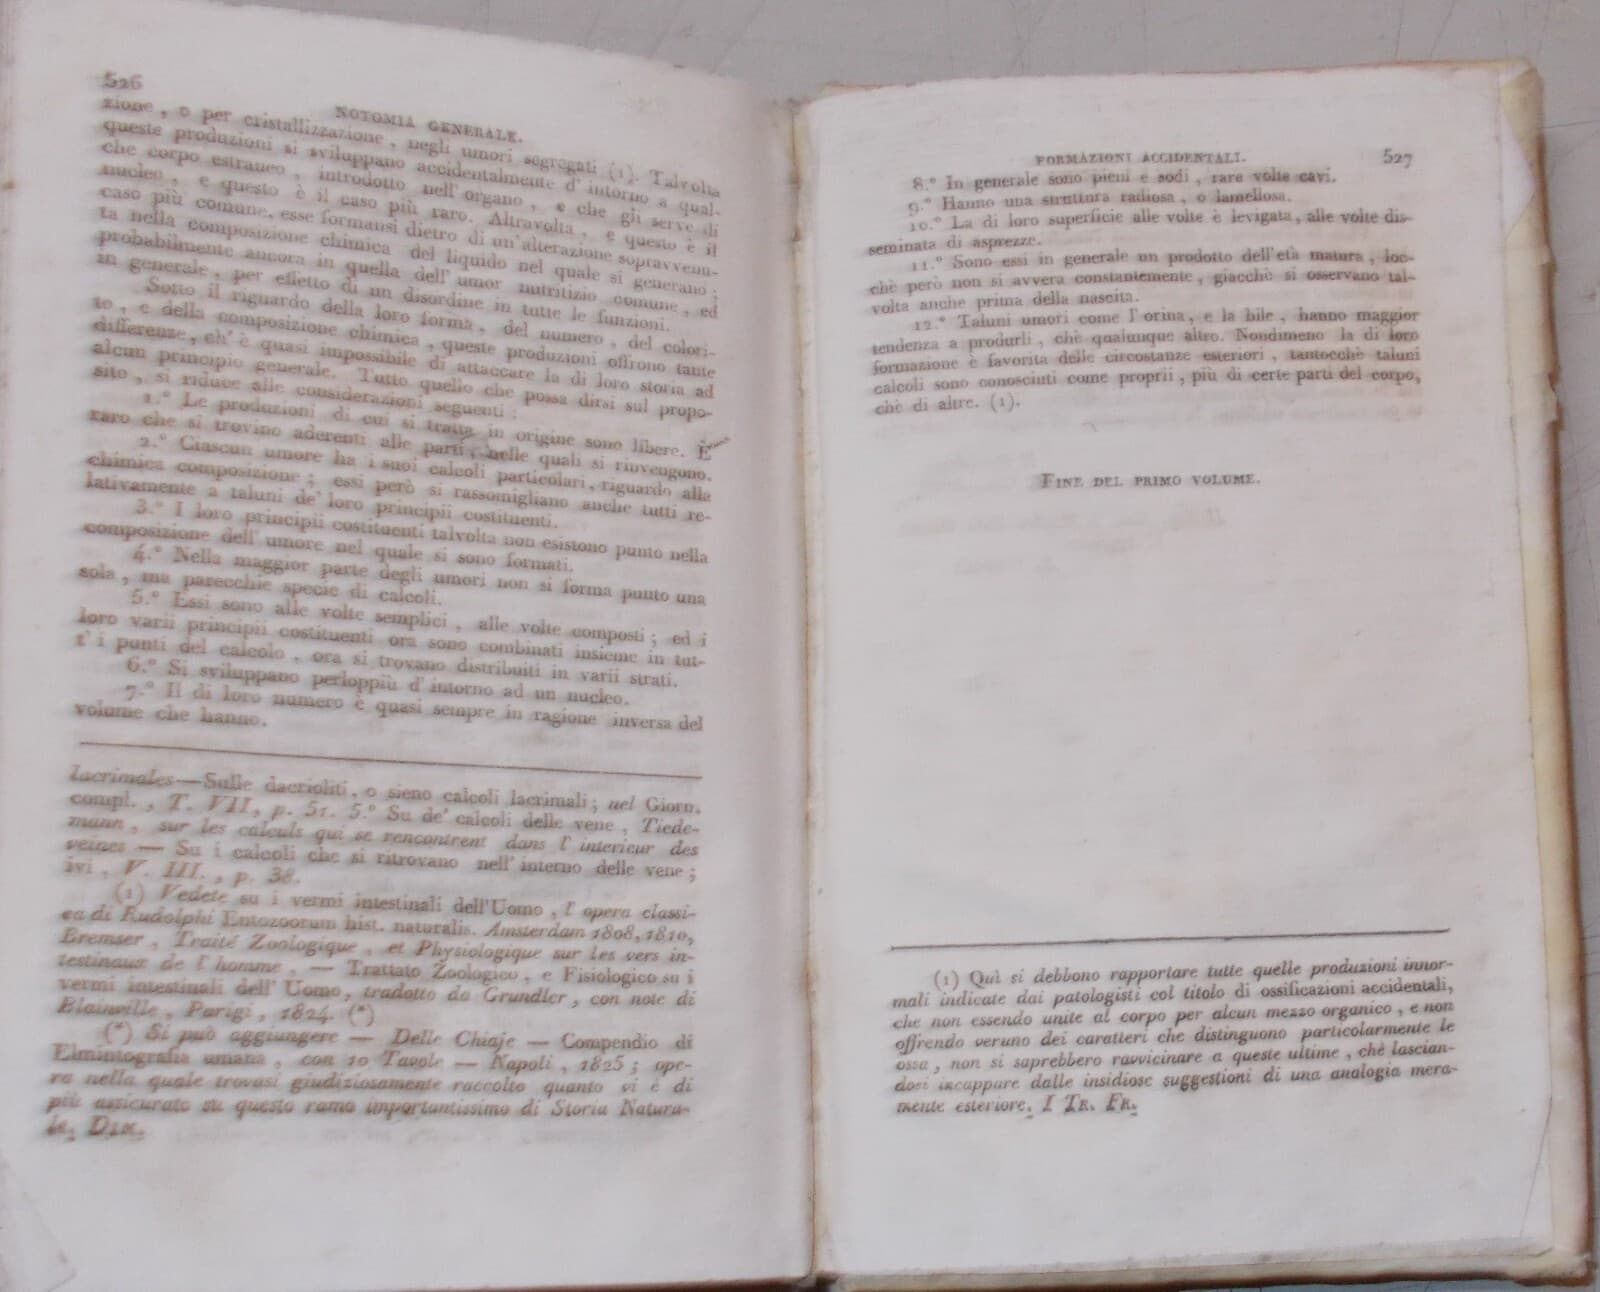 526
NOTOMIA GENERALE.
zione, o per cristallizzazione, negli umori segregati (1). Talvolta
queste produzioni si sviluppano accidentalmente d'intorno a qual-
che corpo estraneo, introdotto nell'organo, e che gli serve di
nucleo, e questo è il caso più raro. Altravolta, e questo è il
caso più comune, esse formansi dietro di un'alterazione sopravvenu-
ta nella composizione chimica del liquido nel quale si generano;
probabilmente ancora in quella dell'umor nutritizio comune, ed
in generale, per effetto di un disordine in tutte le funzioni.
Sotto il riguardo della loro forma, del numero, del colori-
to, e della composizione chimica, queste produzioni offrono tante
differenze, ch'è quasi impossibile di attaccare la di loro storia ad
alcun principio generale. Tutto quello che possa dirsi sul propo-
sito, si riduce alle considerazioni seguenti:
1.° Le produzioni di cui si tratta in origine sono libere. È
raro che si trovino aderenti alle parti, nelle quali si rinvengono.
2.° Ciascun umore ha i suoi calcoli particolari, riguardo alla
chimica composizione; essi però si rassomigliano anche tutti re-
lativamente a taluni de' loro principii costituenti.
3.° I loro principii costituenti talvolta non esistono punto nella
composizione dell'umore nel quale si sono formati.
4.° Nella maggior parte degli umori non si forma punto una
sola, ma parecchie specie di calcoli.
5.° Essi sono alle volte semplici, alle volte composti; ed i
loro varii principii costituenti ora sono combinati insieme in tut-
t'i punti del calcolo, ora si trovano distribuiti in varii strati.
6.° Si sviluppano perloppiù d'intorno ad un nucleo.
7.° Il di loro numero è quasi sempre in ragione inversa del
volume che hanno.
lacrimales—Sulle dacrioliti, o sieno calcoli lacrimali; nel Giorn.
compl., T. VII, p. 51. 5.° Su de' calcoli delle vene, Tiede-
mann, sur les calculs qui se rencontrent dans l'interieur des
veines — Su i calcoli che si ritrovano nell'interno delle vene;
ivi, V. III., p. 38.
(1) Vedete su i vermi intestinali dell'Uomo, l'opera classi-
ca di Rudolphi Entozoorum hist. naturalis. Amsterdam 1808, 1810,
Bremser, Traité Zoologique, et Physiologique sur les vers in-
testinaux de l'homme, — Trattato Zoologico, e Fisiologico su i
vermi intestinali dell'Uomo, tradotto da Grundler, con note di
Blainville, Parigi, 1824. (*)
(*) Si può aggiungere — Delle Chiaje — Compendio di
Elmintografia umana, con 10 Tavole — Napoli, 1825; ope-
ra nella quale trovasi giudiziosamente raccolto quanto vi è di
più assicurato su questo ramo importantissimo di Storia Natura-
le. Dim.
FORMAZIONI ACCIDENTALI. 527
8.° In generale sono pieni e sodi, rare volte cavi.
9.° Hanno una struttura radiosa, o lamellosa.
10.° La di loro superficie alle volte è levigata, alle volte dis-
seminata di asprezze.
11.° Sono essi in generale un prodotto dell'età matura, loc-
chè però non si avvera constantemente, giacchè si osservano tal-
volta anche prima della nascita.
12.° Taluni umori come l'orina, e la bile, hanno maggior
tendenza a produrli, chè qualunque altro. Nondimeno la di loro
formazione è favorita delle circostanze esteriori, tantocchè taluni
calcoli sono conosciuti come proprii, più di certe parti del corpo,
chè di altre. (1).
FINE DEL PRIMO VOLUME.
(1) Quì si debbono rapportare tutte quelle produzioni innor-
mali indicate dai patologisti col titolo di ossificazioni accidentali,
che non essendo unite al corpo per alcun mezzo organico, e non
offrendo veruno dei caratteri che distinguono particolarmente le
ossa, non si saprebbero ravvicinare a queste ultime, chè lascian-
dosi incappare dalle insidiose suggestioni di una analogia mera-
mente esteriore. I TR. FR.